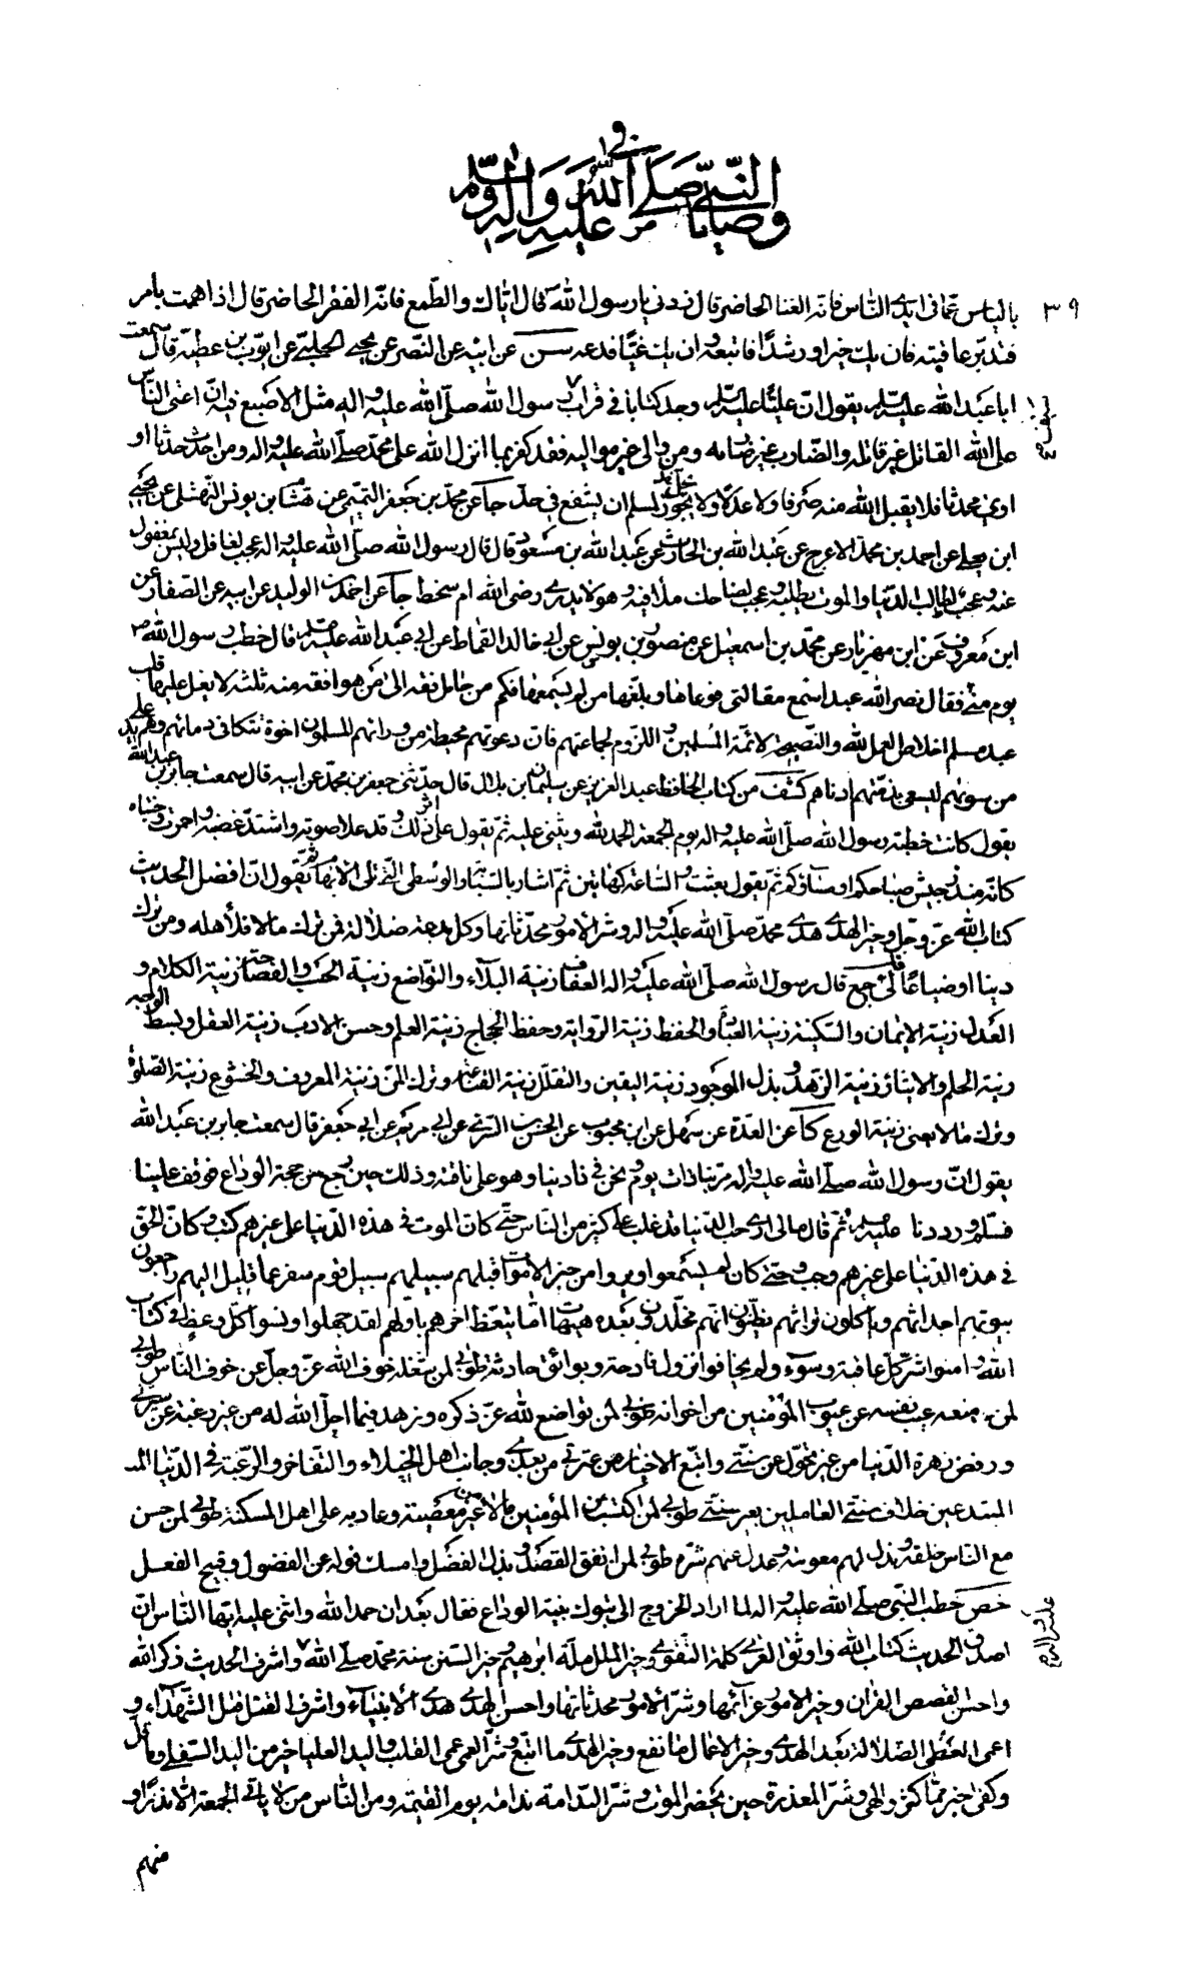 في
وصايا النبي صلى الله عليه واله وسلم
٣٩
بالياس عما في ايدي الناس فانه الغنا الحاضر قال زدني يا رسول الله قال اياك والطمع فانه الفقر الحاضر قال اذا هممت بامر
فتدبر عاقبته فان يك خيرا ورشدا فاتبعه وان يك غيا فدعه سن عن ابيه عن النضر عن يحيى الحلبي عن ايوب بن عطية قال سمعت
ابا عبد الله عليه السلم يقول ان عليا عليه السلم وجد كتابا في قراب سيف رسول الله صلى الله عليه واله مثل الاصبع فيه ان اعتى الناس
على الله القاتل غير قاتله والضارب غير ضاربه ومن والى غير مواليه فقد كفر بما انزل الله على محمد صلى الله عليه واله ومن احدث حدثا او
اوى محدثا فلا يقبل الله منه صرفا ولا عدلا ولا يجوز لمسلم ان يشفع في حد جا عن محمد بن جعفر التميمي عن هشام بن يونس النهشلي عن يحيى
ابن يعلى عن احمد بن محمد الاعرج عن عبد الله بن الحارث عن عبد الله بن مسعود قال قال رسول الله صلى الله عليه واله عجب لغافل وليس بمغفول
عنه وعجب لطالب الدنيا والموت يطلبه وعجب لضاحك ملأ فيه وهو لا يدري رضي الله ام سخط جا عن احمد بن الوليد عن ابيه عن الصفار عن
ابن معروف عن ابن مهزيار عن محمد بن اسمعيل عن منصور بن يونس عن ابي خالد القماط عن ابي عبد الله عليه السلم قال خطب رسول الله ص
يوم منى فقال نضر الله عبدا سمع مقالتي فوعاها وبلغها من لم يسمعها فكم من حامل فقه الى من هو افقه منه ثلثة لا يغل عليها قلب
عبد مسلم اخلاص العمل لله والنصيحة لائمة المسلمين واللزوم لجماعتهم فان دعوتهم محيطة من ورائهم المسلمون اخوة تتكافى دمائهم وهم يد على
من سواهم يسعى بذمتهم ادناهم كشف من كتاب الحافظ عبد العزيز عن سليمان بن بلال قال حدثني جعفر بن محمد عن ابيه قال سمعت جابر بن عبد الله
يقول كانت خطبة رسول الله صلى الله عليه واله يوم الجمعة الحمد لله ويثني عليه ثم يقول على اثر ذلك وقد علا صوته واشتد غضبه واحمرت وجنتاه
كانه منذر جيش صباحكم او مساؤكم ثم يقول بعثت والساعة كهاتين ثم اشار بالسبابة والوسطى التي تلي الابهام ثم يقول ان افضل الحديث
كتاب الله عز وجل وخير الهدي هدي محمد صلى الله عليه واله وشر الامور محدثاتها وكل بدعة ضلالة فمن ترك مالا فلاهله ومن ترك
دينا او ضياعا فالي جع قال رسول الله صلى الله عليه واله العفاف زينة البلاء والتواضع زينة الحسب والفصاحة زينة الكلام و
العدل زينة الايمان والسكينة زينة العبادة والحفظ زينة الرواية وحفظ الحجاج زينة العلم وحسن الادب زينة العقل وبسط الوجه
زينة الحلم والايثار زينة الزهد وبذل الموجود زينة اليقين والتقلل زينة القناعة وترك المن زينة المعروف والخشوع زينة الصلوة
وترك ما لا يعني زينة الورع كا عن العدة عن سهل عن ابن محبوب عن الحسن السري عن ابي مريم عن ابي جعفر قال سمعت جابر بن عبد الله
يقول ان رسول الله صلى الله عليه واله مر بنا ذات يوم ونحن في نادينا وهو على ناقته وذلك حين رجع من حجة الوداع فوقف علينا
فسلم ورددنا عليه السلم ثم قال مالي ارى حب الدنيا قد غلب على كثير من الناس حتى كان الموت في هذه الدنيا على غيرهم كتب وكان الحق
في هذه الدنيا على غيرهم وجب وحتى كان لم يسمعوا ويروا من خبر الاموات قبلهم سبيلهم سبيل قوم سفر عما قليل اليهم راجعون
بيوتهم اجداثهم وياكلون تراثهم يظنون انهم مخلدون بعدهم هيهات اما يتعظ اخرهم باولهم لقد جهلوا ونسوا كل وعظ في كتاب
الله وامنوا شر كل عاقبة سوء ولم يخافوا نزول فادحة وبوائق حادثة طوبى لمن شغله خوف الله عز وجل عن خوف الناس طوبى
لمن منعه عيبه نفسه عن عيوب المؤمنين من اخوانه طوبى لمن تواضع لله عز ذكره وزهد فيما احل الله له من غير رغبة عن سيرتي
ورفض زهرة الدنيا من غير تحول عن سنتي واتبع الاخيار من عترتي من بعدي وجانب اهل الخيلاء والتفاخر والرغبة في الدنيا
المبتدعين خلاف سنتي العاملين بغير سنتي طوبى لمن اكتسب من المؤمنين مالا من غير معصية وعاد به على اهل المسكنة طوبى لمن حسن
مع الناس خلقه وبذل لهم معونته وعدل عنهم شره طوبى لمن انفق القصد وبذل الفضل وامسك قوله عن الفضول وقبيح الفعل
خص خطب النبي صلى الله عليه واله لما اراد الخروج الى تبوك بثنية الوداع فقال بعد ان حمد الله واثنى عليه ايها الناس ان
اصدق الحديث كتاب الله واوثق العرى كلمة التقوى وخير الملل ملة ابرهيم وخير السنن سنة محمد صلى الله عليه واله واشرف الحديث ذكر الله
واحسن القصص القران وخير الامور عزائمها وشر الامور محدثاتها واحسن الهدي هدي الانبياء واشرف القتل قتل الشهداء و
اعمى العمى الضلالة بعد الهدى وخير الاعمال ما نفع وخير الهدى ما اتبع وشر العمى عمى القلب واليد العليا خير من اليد السفلى وما قل
وكفى خير مما كثر والهى وشر المعذرة حين يحضر الموت وشر الندامة ندامة يوم القيمة ومن الناس من لا ياتي الجمعة الا نذرا و
منهم